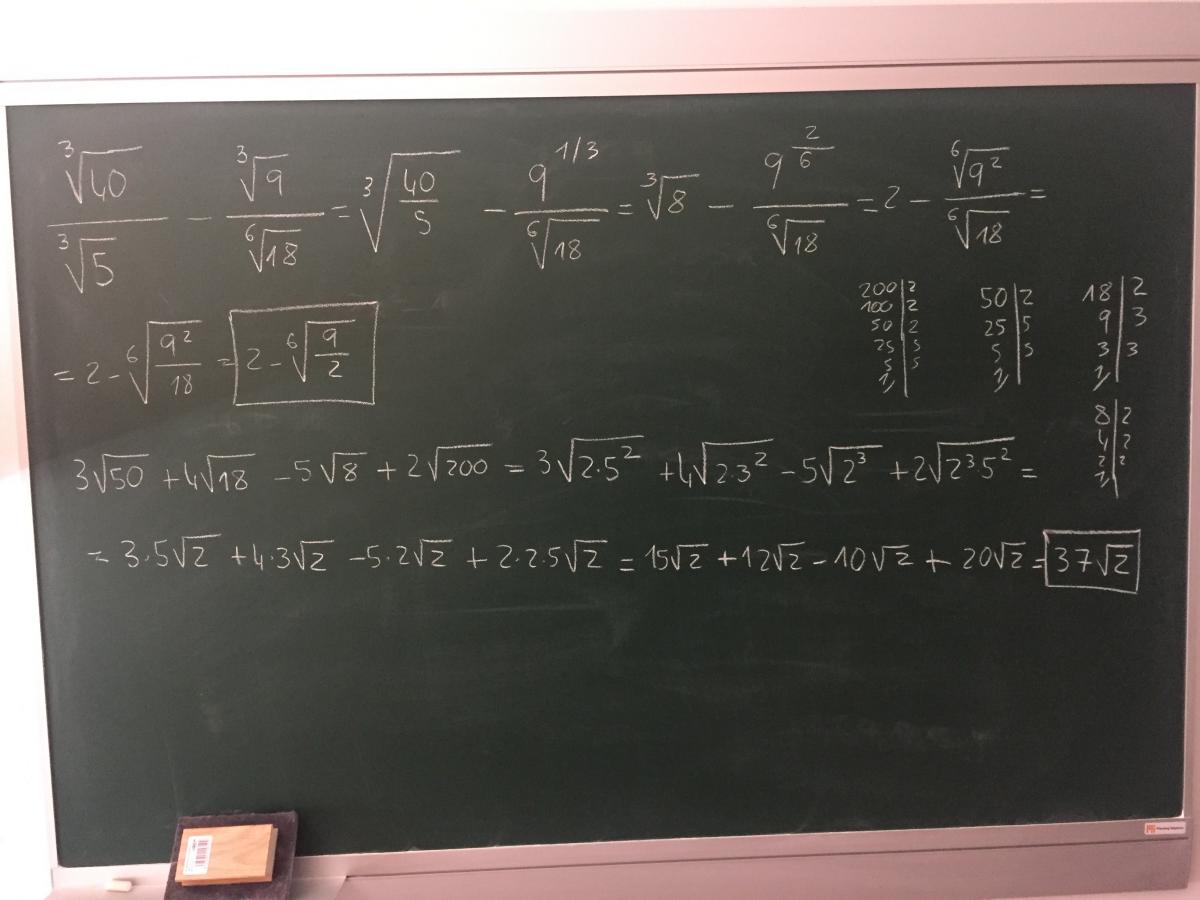 ∛40/∛5 − ∛9/⁶√18 = ∛(40/5) − 9^(1/3)/⁶√18 = ∛8 − 9^(2/6)/⁶√18 = 2 − ⁶√(9²)/⁶√18 =
= 2 − ⁶√(9²/18) = 2 − ⁶√(9/2)
200 | 2
100 | 2
50 | 2
25 | 5
5 | 5
1 |
50 | 2
25 | 5
5 | 5
1 |
18 | 2
9 | 3
3 | 3
1 |
8 | 2
4 | 2
2 | 2
1 |
3√50 + 4√18 − 5√8 + 2√200 = 3√(2·5²) + 4√(2·3²) − 5√(2³) + 2√(2³5²) =
= 3·5√2 + 4·3√2 − 5·2√2 + 2·2·5√2 = 15√2 + 12√2 − 10√2 + 20√2 = 37√2